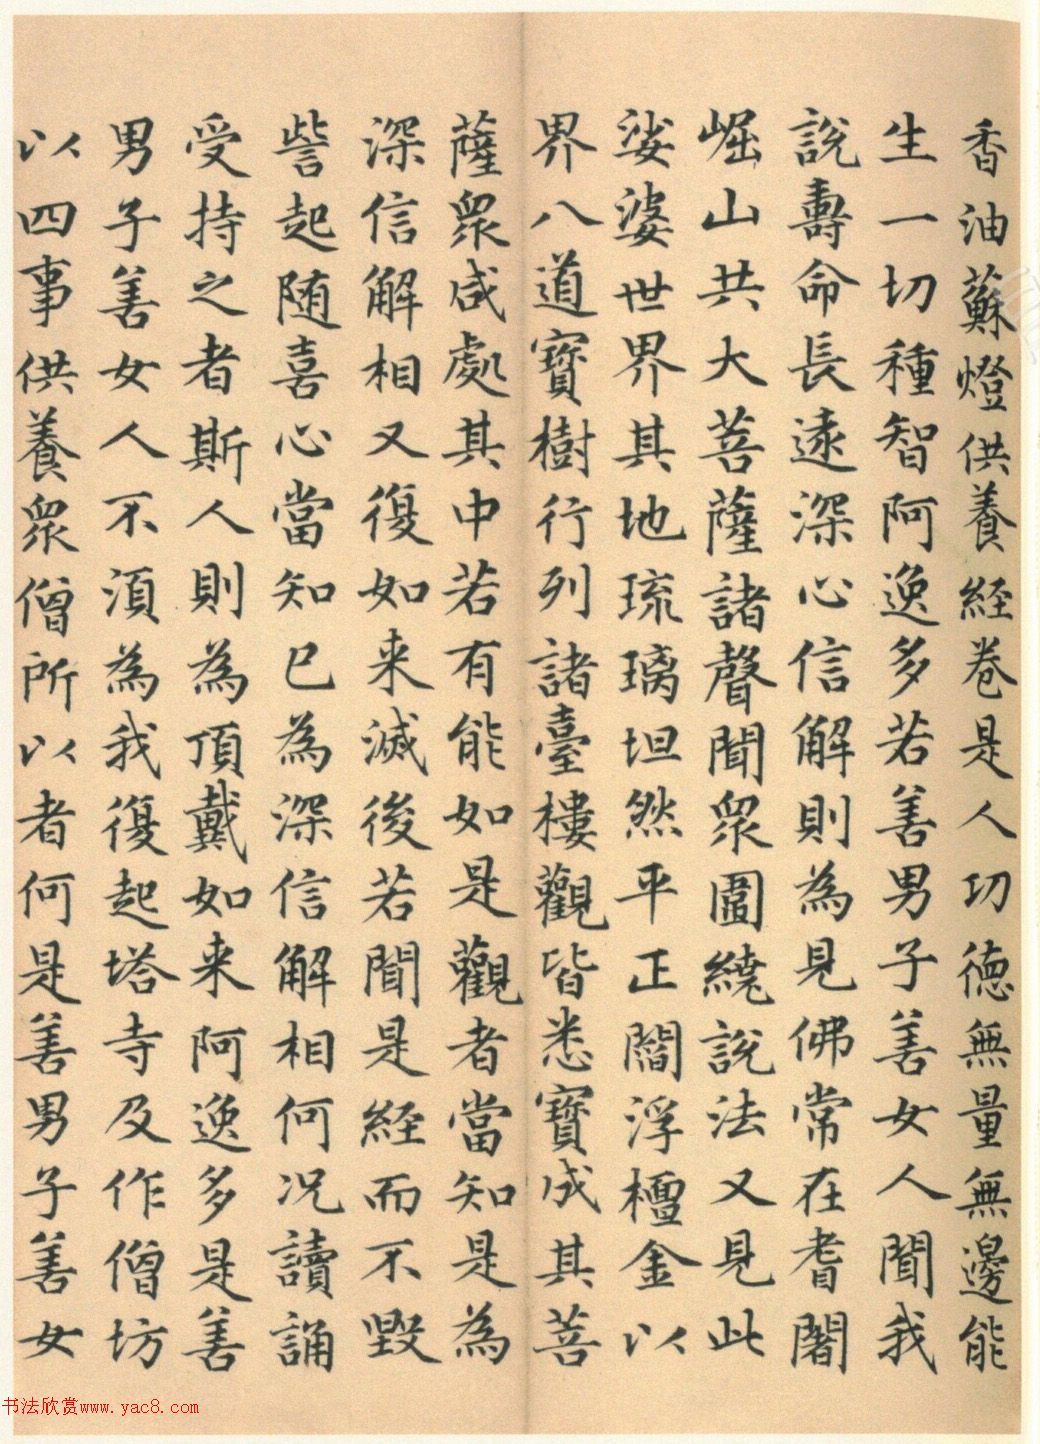 香油蘇燈供養經卷是人功德無量無邊能
生一切種智阿逸多若善男子善女人聞我
說壽命長遠深心信解則為見佛常在耆闍
崛山共大菩薩諸聲聞眾圍繞說法又見此
娑婆世界其地琉璃坦然平正閻浮檀金以
界八道寶樹行列諸臺樓觀皆悉寶成其菩
薩眾咸處其中若有能如是觀者當知是為
深信解相又復如来滅後若聞是經而不毀
訾起随喜心當知已為深信解相何况讀誦
受持之者斯人則為頂戴如来阿逸多是善
男子善女人不湏為我復起塔寺及作僧坊
以四事供養眾僧所以者何是善男子善女
书法欣赏www.yac8.com